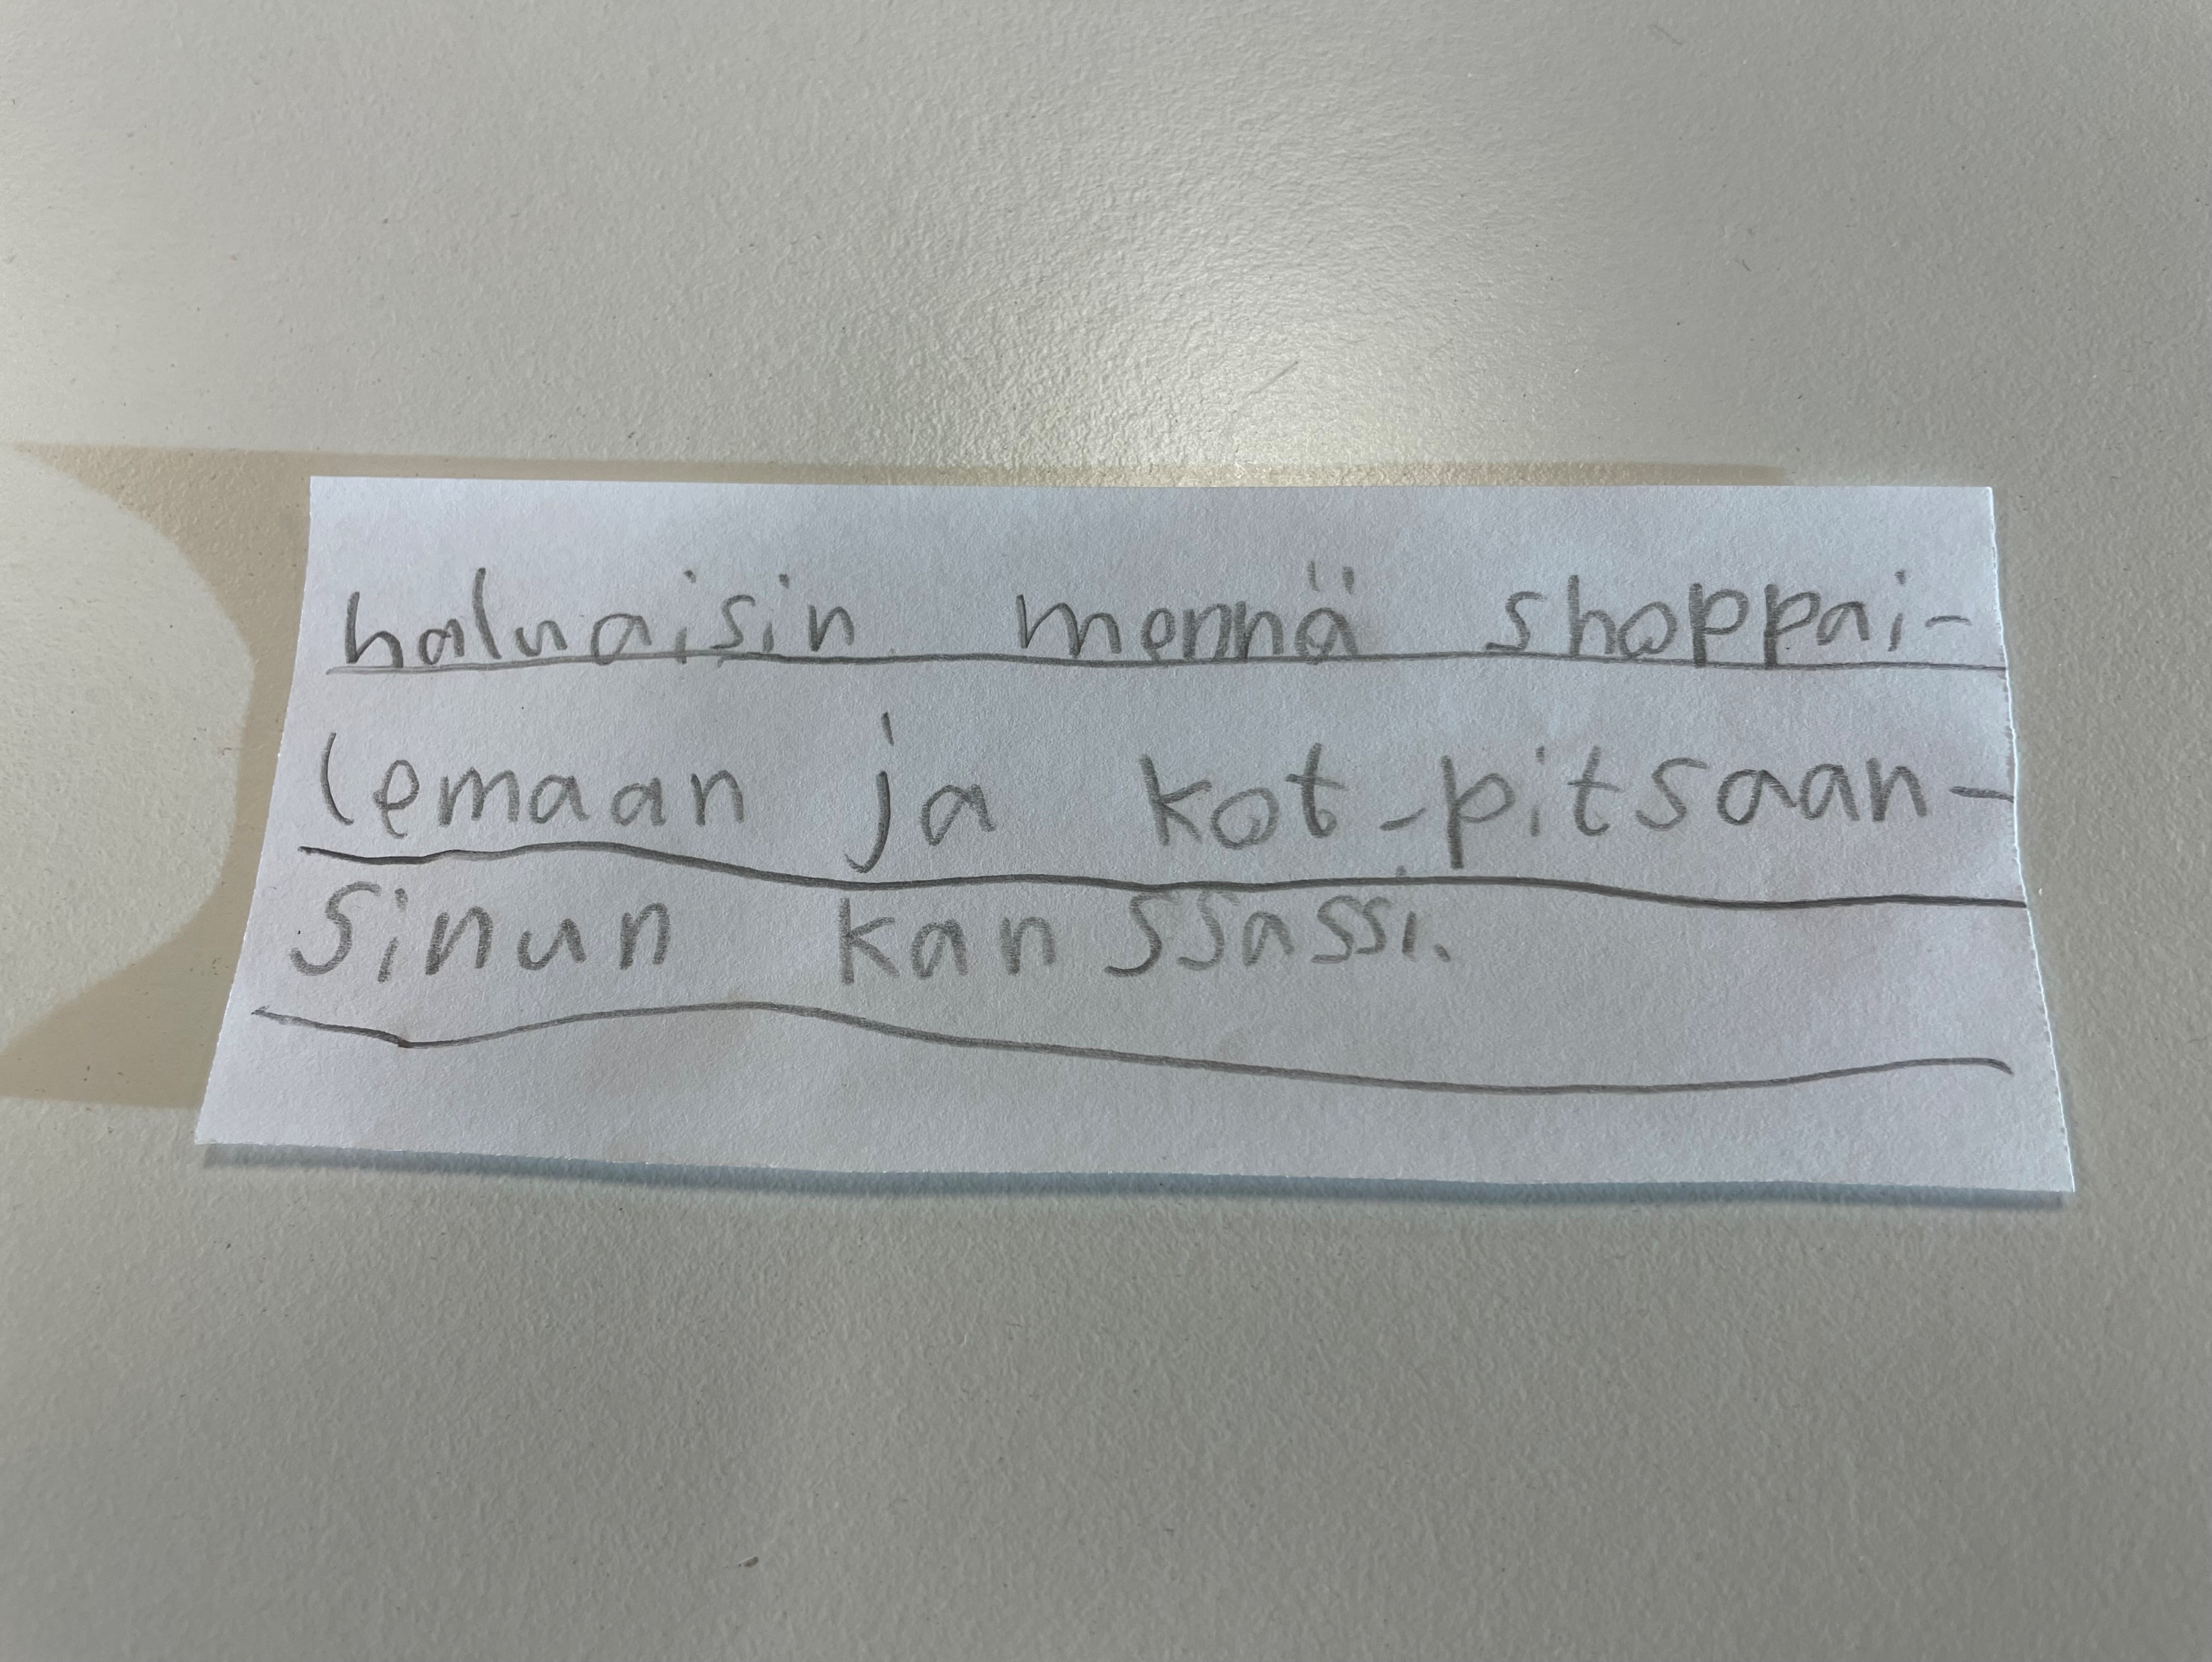 haluaisin mennä shoppai-
lemaan ja kot-pitsaan-
Sinun kanssassi.